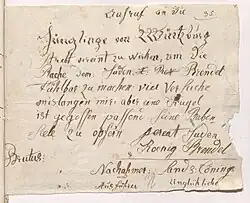 Aufruf an die
35
Jünglinge von Würzburg
Brust vereint zu wirken, um die
Rache dem Juden Brendel
fühlbar zu machen viel Versuche
mislangen mir aber eine Kugel
ist gegossen seine Raben
Sele zu opfern pereat Juden
Koenig Brendel
Brutus:
Nachahmer: Sand &: Löning
Ausführer Unglückliche